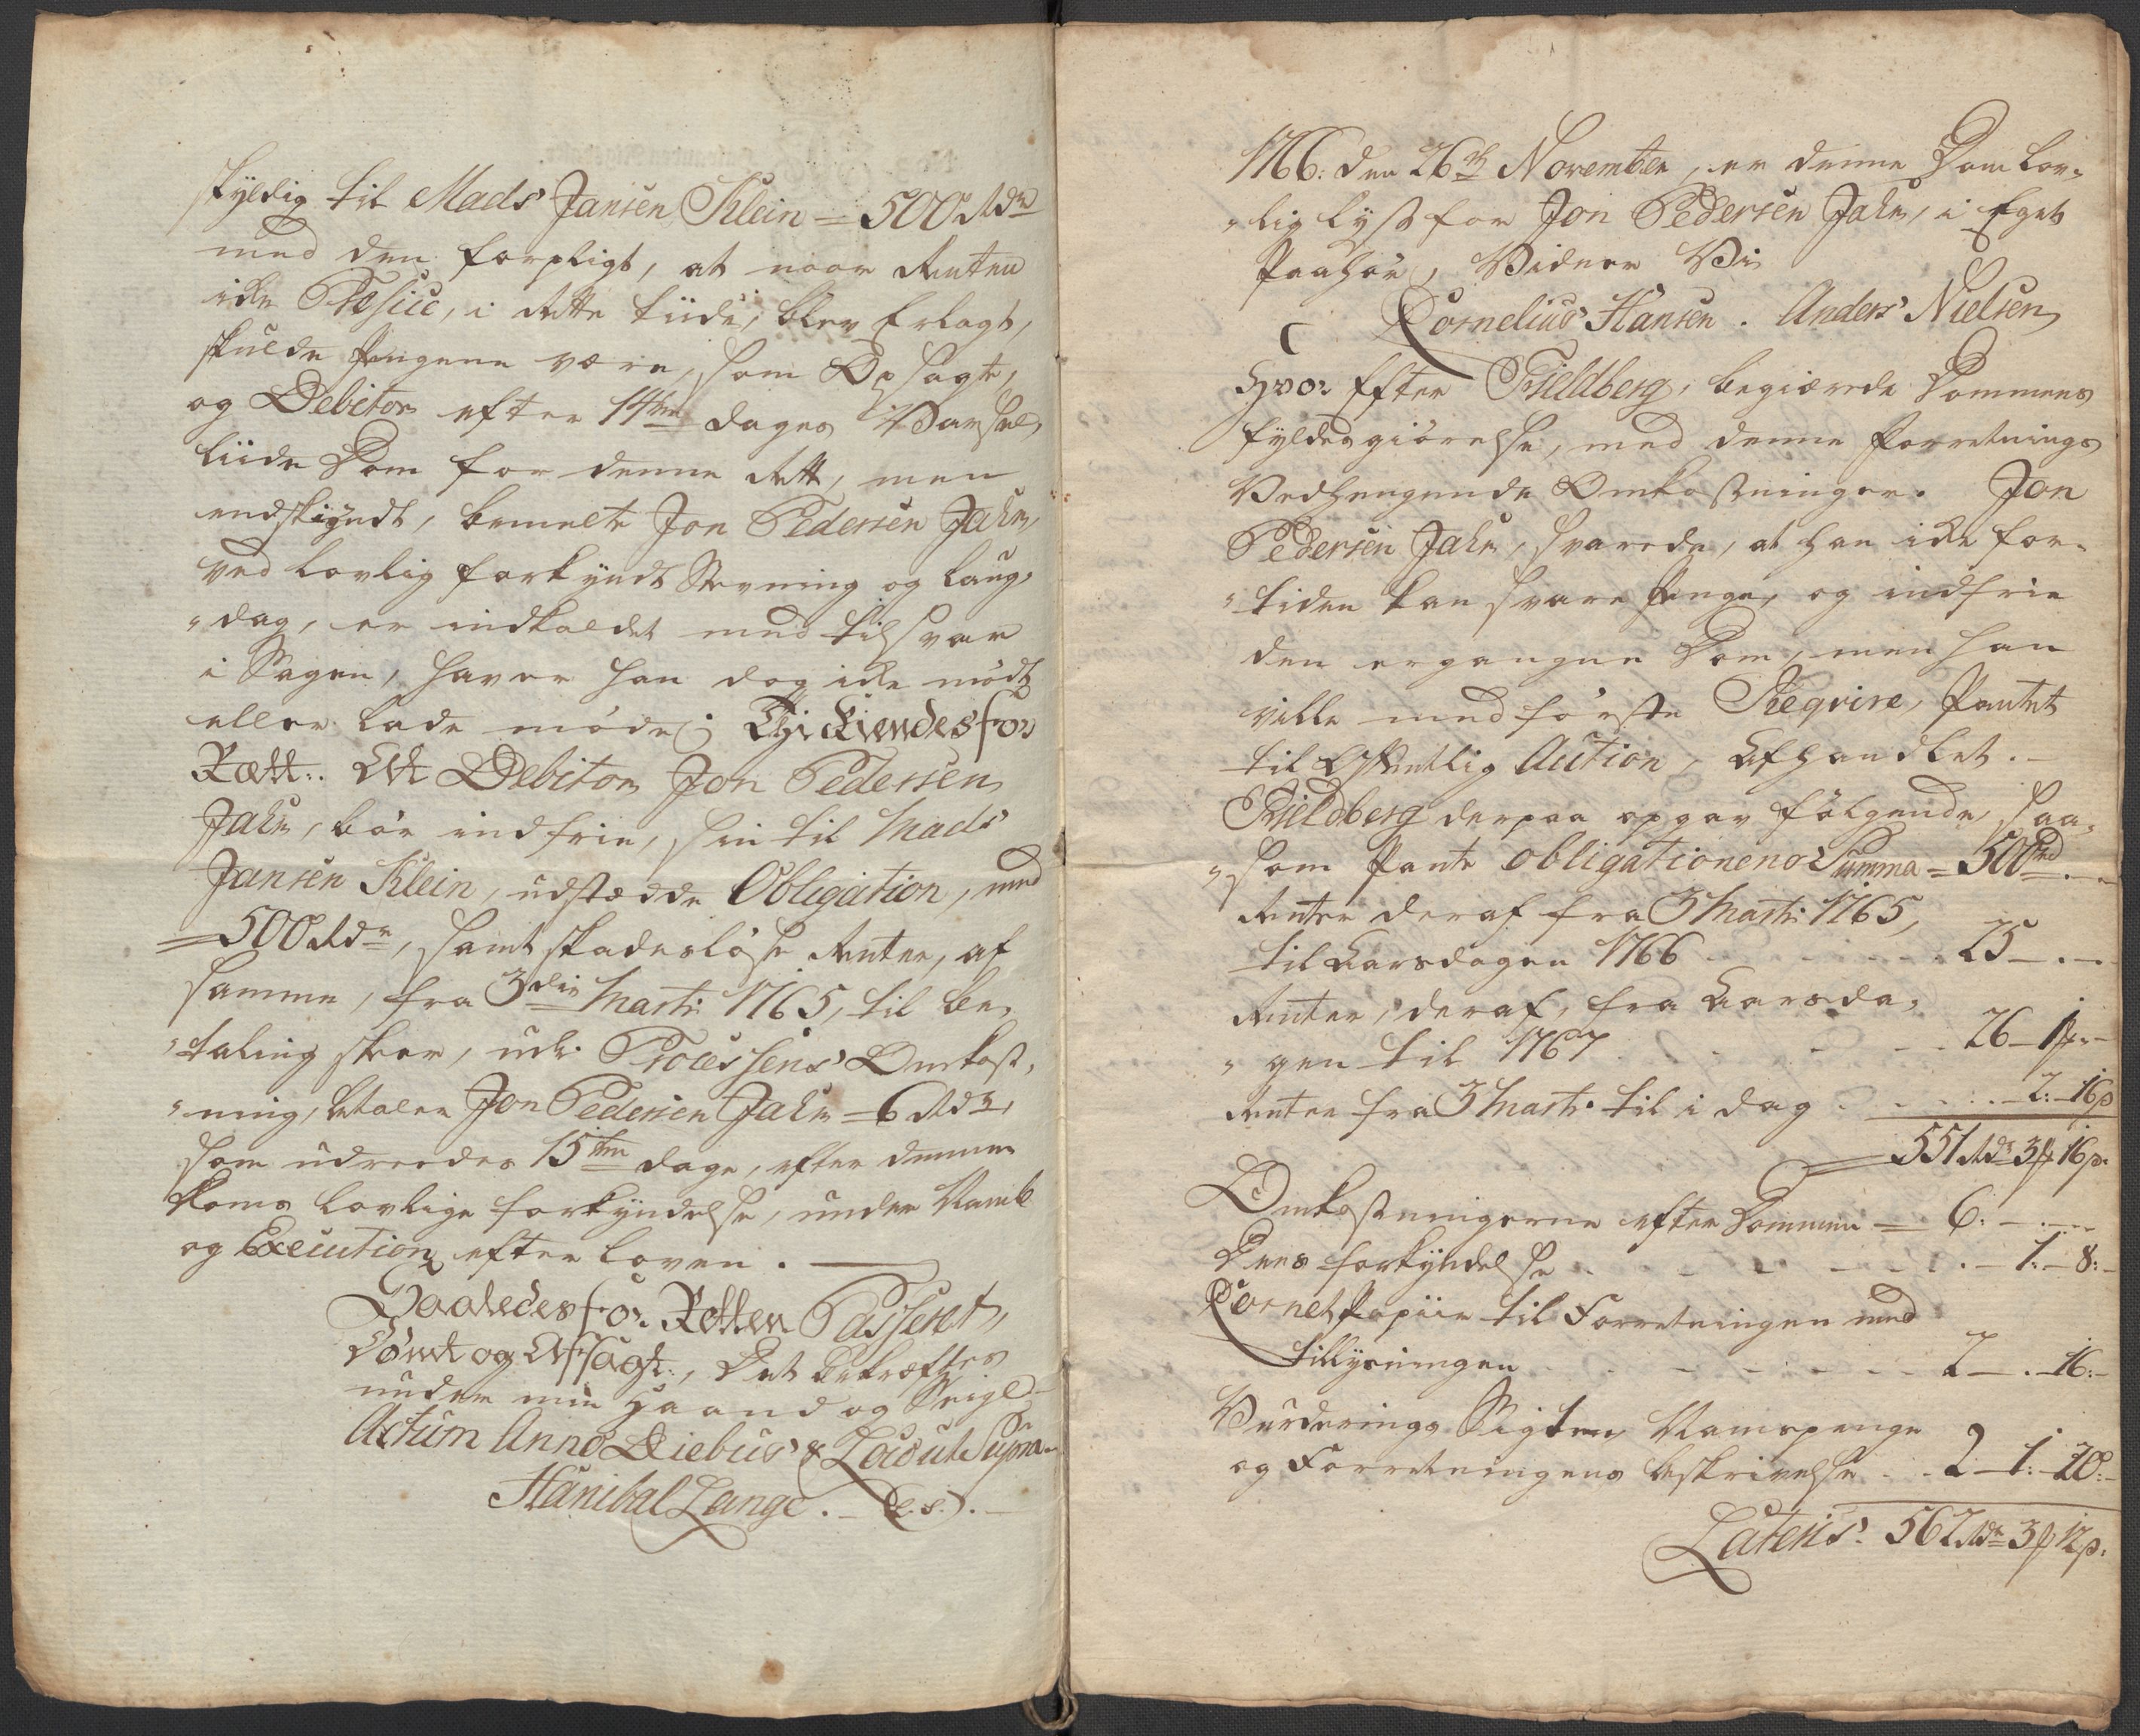 skyldig til Mads Jansen Klein = 500 Rdr
med den forpligt, at naar Renten
ikke Precise, i rette tiide, blev Erlagt,
skulde Pengene være, som Opsagte,
og Debitor efter 14ten dages Varsel,
liide Dom for denne Rett, men
endskiøndt, bemelte Jon Pedersen Jahr,
ved lovlig forkyndt Stevning og laug-
"dag, er indkaldet med tilsvar
i Sagen, haver han dog ikke mødt
eller lade møde; Thi Kiendes for
Rætt: Att Debitor Jon Pedersen
Jahr, bør indfrie, sin til Mads
Jansen Klein, udstædde Obligation, med
= 500 Rdr, samt skadesløse Renter, af
samme, fra 3die Marti 1765, til be-
"taling skeer, udi Processens Omkost-
"ning, betaler Jon Pedersen Jahr = 6 Rdr,
som udreedes 15ten dage, efter denne
Doms lovlige forkyndelse, under Nam
og Execution efter loven.
Saaledes for Retten Passeret,
Dømt og Afsagt, Det bekræftes
under min Haand og Seigl
Actum Anno Diebus & Loco ut Supra
Hanibal Lange. (L.S.).
1766. den 26de November, er denne Dom lov-
"lig lyst for Jon Pedersen Jahr, i Eget
Paahør, Vidner Vi
Cornelius Hansen. Anders Nielsen
Hvor Efter Fieldberg, begiærede Dommens
fyldestgiørelse, med denne Forretnings
Vedhengende Omkostninger. Jon
Pedersen Jahr, svarede, at han ikke for-
"tiden kan svare Penge, og indfrie
den ergangne Dom, men han
ville med første Reqvire, Pantet
til Offentlig Auction, Afhandlet.
Fieldberg derpaa opgav følgende, saa-
"som Pante obligationens Summa = 500rd
Renter deraf fra 3 Marti 1765,
til Aarsdagen 1766 25
Renter, deraf, fra Aarsda-
"gen til 1767 26 - 1
Renter fra 3 Marti til i dag 2: 16
551 Rdr 3 16
Omkostningerne efter Dommen = 6.
Dens forkyndelse 1: 8:
Cornet Papiir til Forretningen med
tillysningen 2 . 16:
Vurderings Sigten, Namspenge
og Forretningens beskrivelse 2 - 1: 20:
Lateris. 562 Rdr 3 12